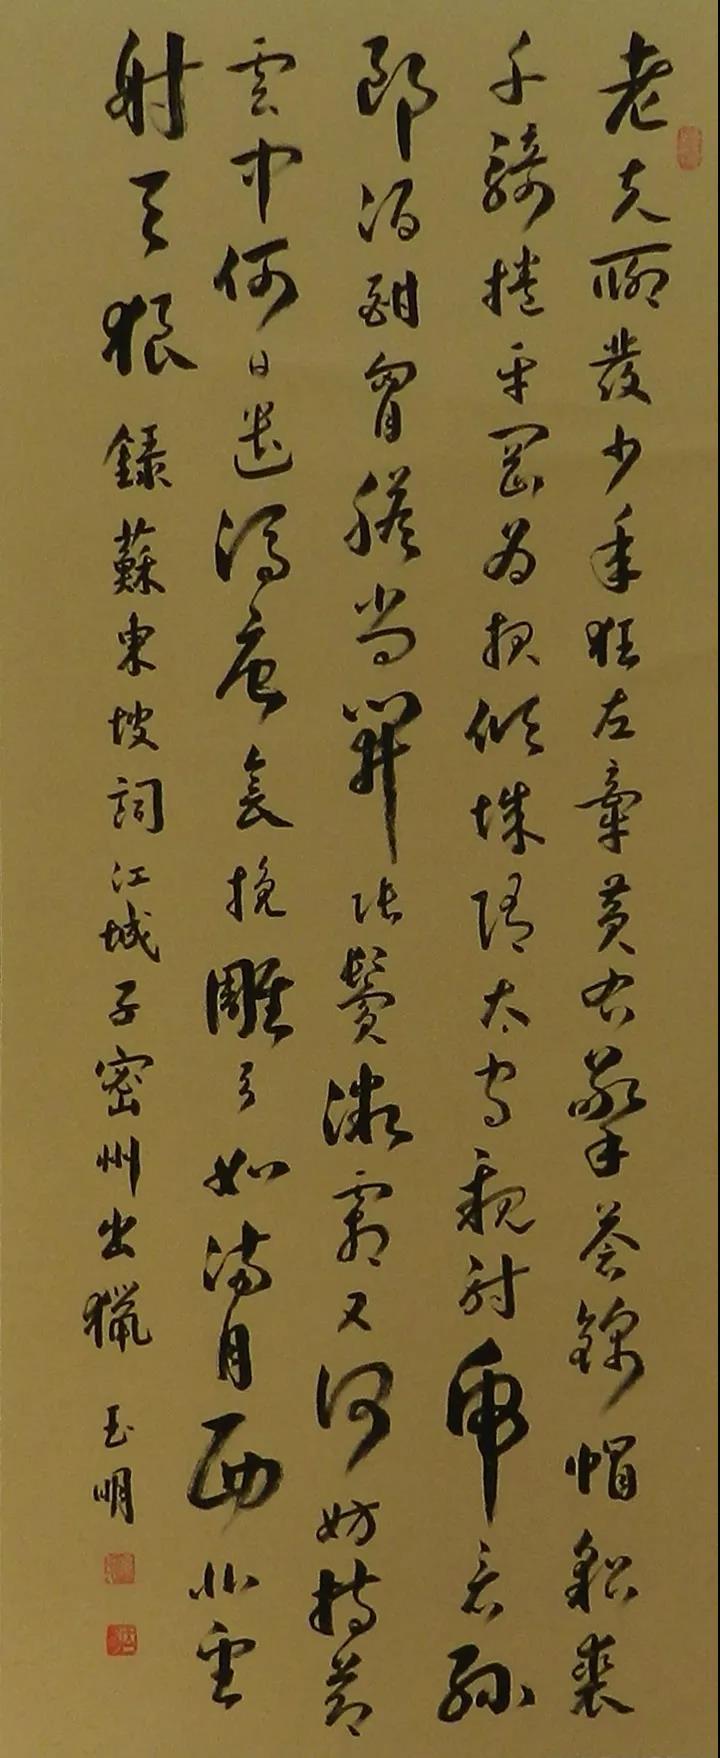 老夫聊發少年狂左牽黃右擎蒼錦帽貂裘
千騎捲平岡為報傾城隨太守親射虎看孫
郎酒酣胷膽尚開張鬢微霜又何妨持節
雲中何日遣馮唐會挽雕弓如滿月西北望
射天狼 錄蘇東坡詞江城子密州出獵 玉明